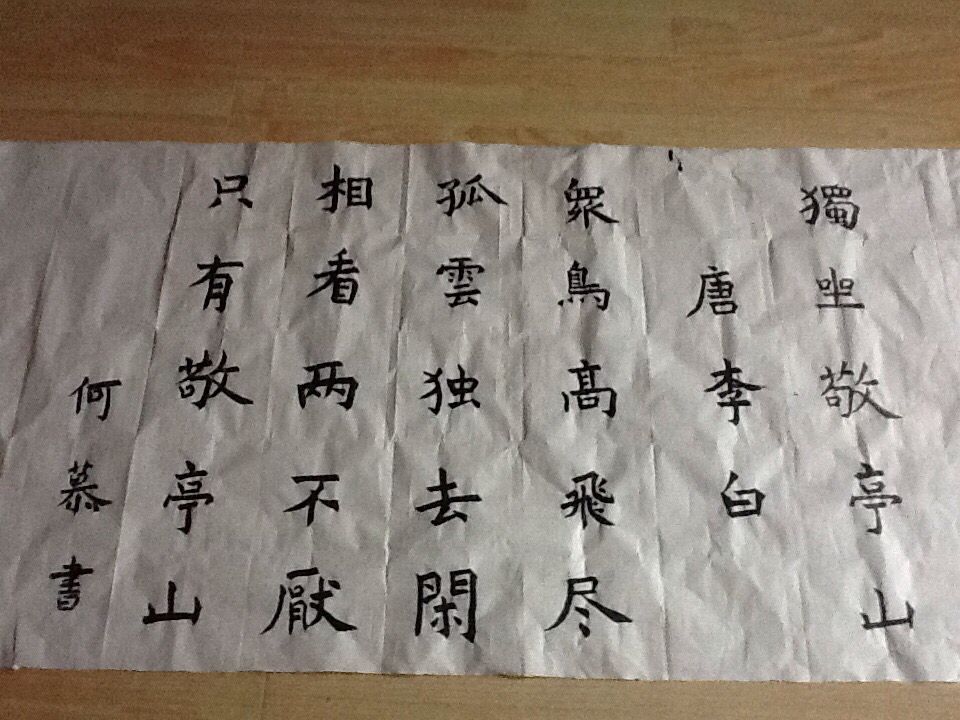 獨坐敬亭山
唐李白
眾鳥高飛尽
孤雲独去閑
相看两不厭
只有敬亭山
何慕書